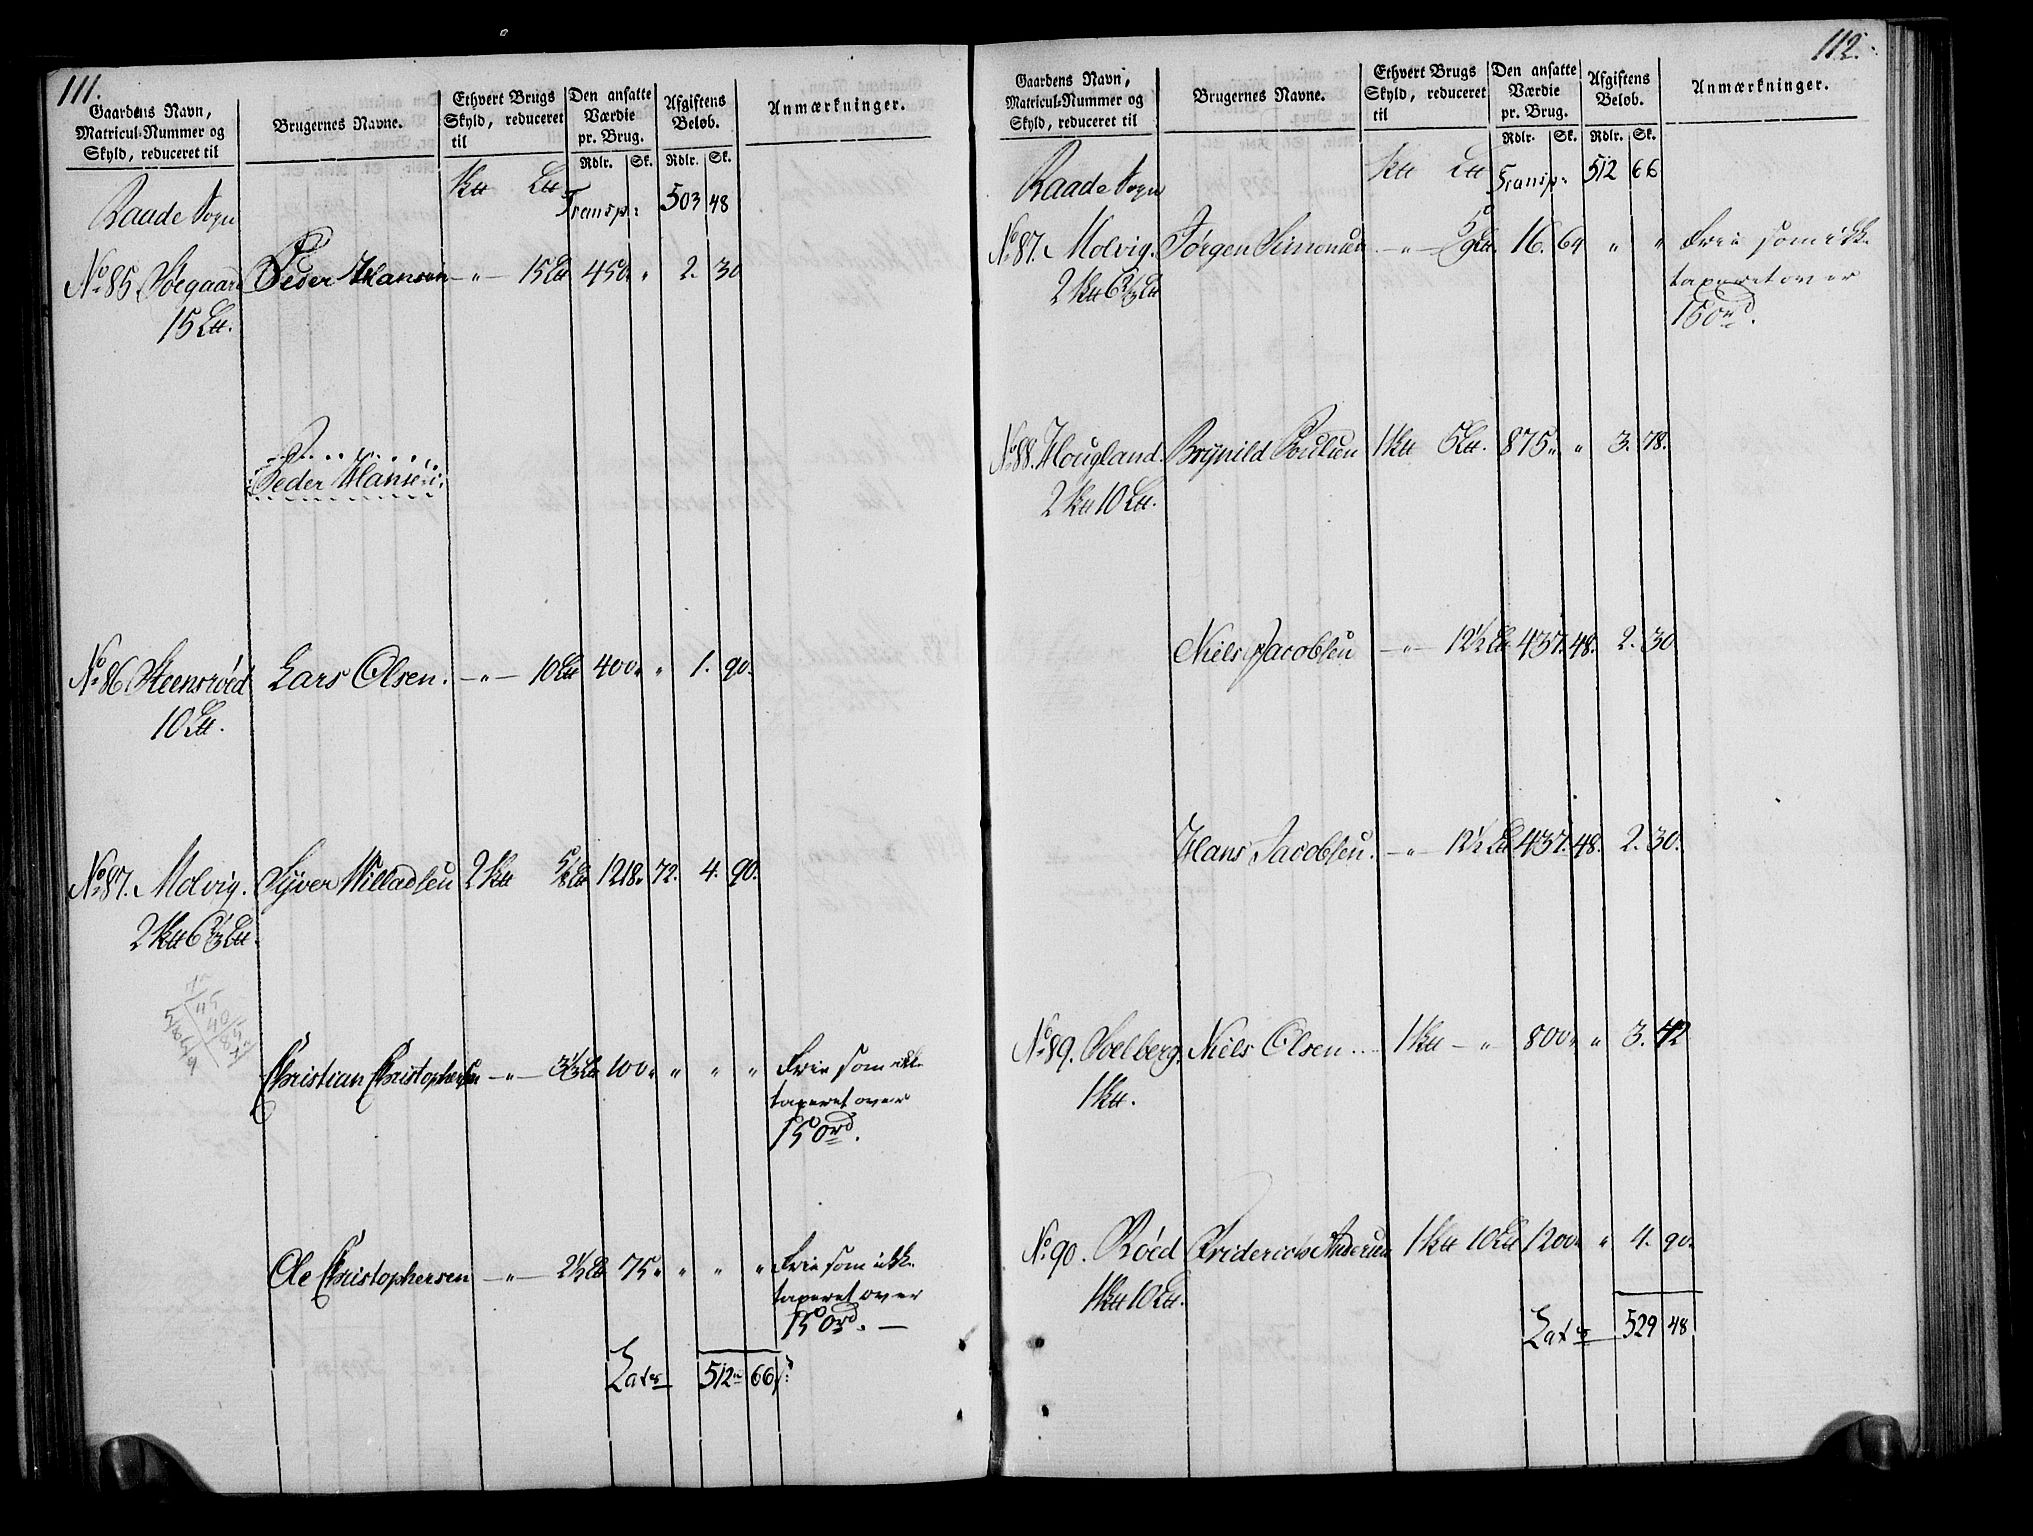 111.
Gaardens Navn, Matricul-Nummer og Skyld, reduceret til | Brugernes Navne. | Ethvert Brugs Skyld, reduceret til | Den ansatte Værdie pr. Brug. Rdlr. Sk. | Afgiftens Beløb. Rdlr. Sk. | Anmærkninger.
Raade Sogn Transp: 503 48
No 85 Soegaard Peder Hansen — " — 15 L 450 " 2. 30
15 L.
Peder Hansen
No 86 Steensrød Lars Olsen. — " — 10 L 400 " 1. 90.
10 L.
No 87. Molvig. Syver Willadsen 2 5/8 L 1218. 72. 4. 90.
2 6 2/3 L.
Christian Christophersen — " — 3 1/3 L 100 " " " Frie som ikke
taxeret over
150rd.
Ole Christophersen — " — 2 1/2 L 75 " " " Frie som ikke
taxeret over
150rd. —
Latus 512 66
112.
Gaardens Navn, Matricul-Nummer og Skyld, reduceret til | Brugernes Navne. | Ethvert Brugs Skyld, reduceret til | Den ansatte Værdie pr. Brug. Rdlr. Sk. | Afgiftens Beløb. Rdlr. Sk. | Anmærkninger.
Raade Sogn Transp: 512 66
No 87. Molvig. Jørgen Simensen — " — 5/9 L. 16. 64 " " Frie som ikke
2 6 2/3 L taxeret over
150rd.
No 88. Hougland. Brynild Poulsen 1 5 L. 875 " 3. 78.
2 10 L.
Niels Jacobsen — " — 12 1/2 L 437. 48. 2. 30
Hans Jacobsen. — " — 12 1/2 L 437. 48. 2. 30.
No 89. Soelberg. Niels Olsen 1 — " 800 " 3. 42
1
No 90. Röed Friderich Andersen 1 10 L 1200 " 4. 90.
1 10 L.
Latus 529 48